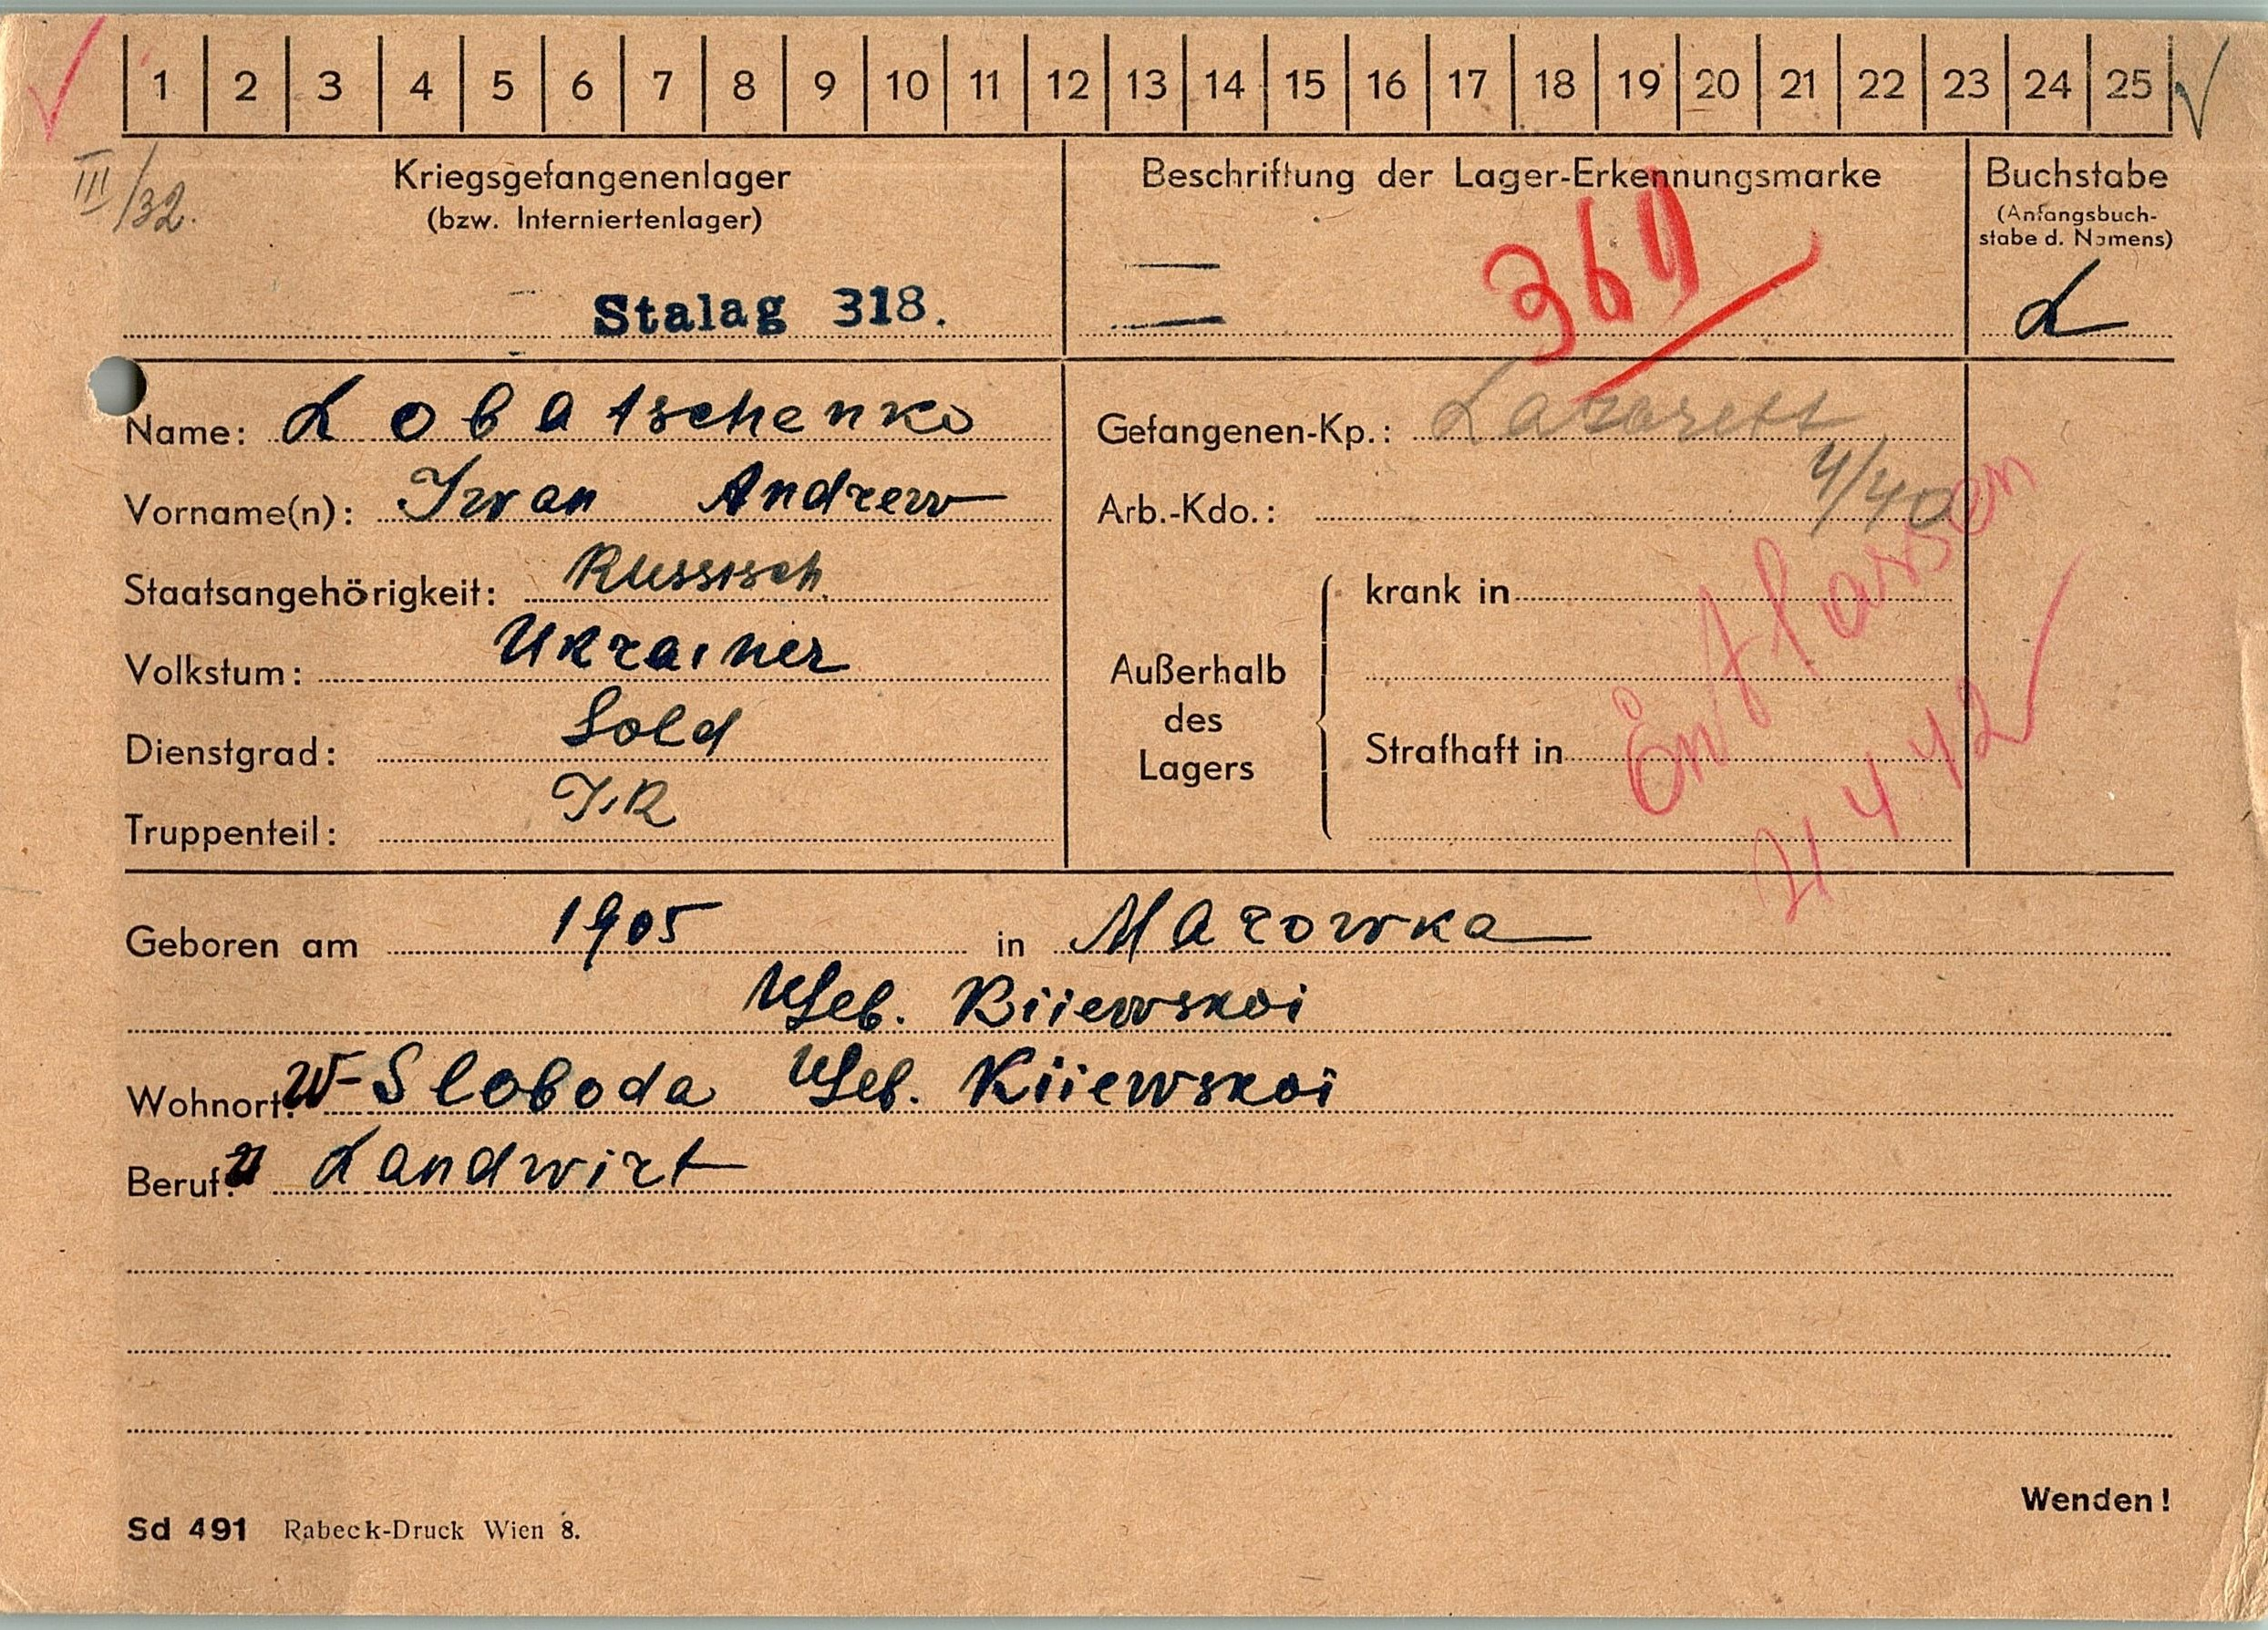 1 2 3 4 5 6 7 8 9 10 11 12 13 14 15 16 17 18 19 20 21 22 23 24 25
III/32.
Kriegsgefangenenlager
(bzw. Interniertenlager)
Stalag 318.
Beschriftung der Lager-Erkennungsmarke
Buchstabe
(Anfangsbuch-
stabe d. Namens)
L
Name: Lobatschenko
Vorname(n): Iwan Andrew
Staatsangehörigkeit: Russisch.
Volkstum: Ukrainer
Dienstgrad: Sold
Truppenteil: I.R
Gefangenen-Kp.: Lazarett
4/40
Arb.-Kdo.:
Außerhalb
des
Lagers
krank in
Strafhaft in
Entlassen
21 4 42
Geboren am 1905 in Marowka
Kiiewskoi
Wohnort: W-Sloboda Kiiewskoi
Beruf: Landwirt
Wenden!
Sd 491 Rabeck-Druck Wien 8.